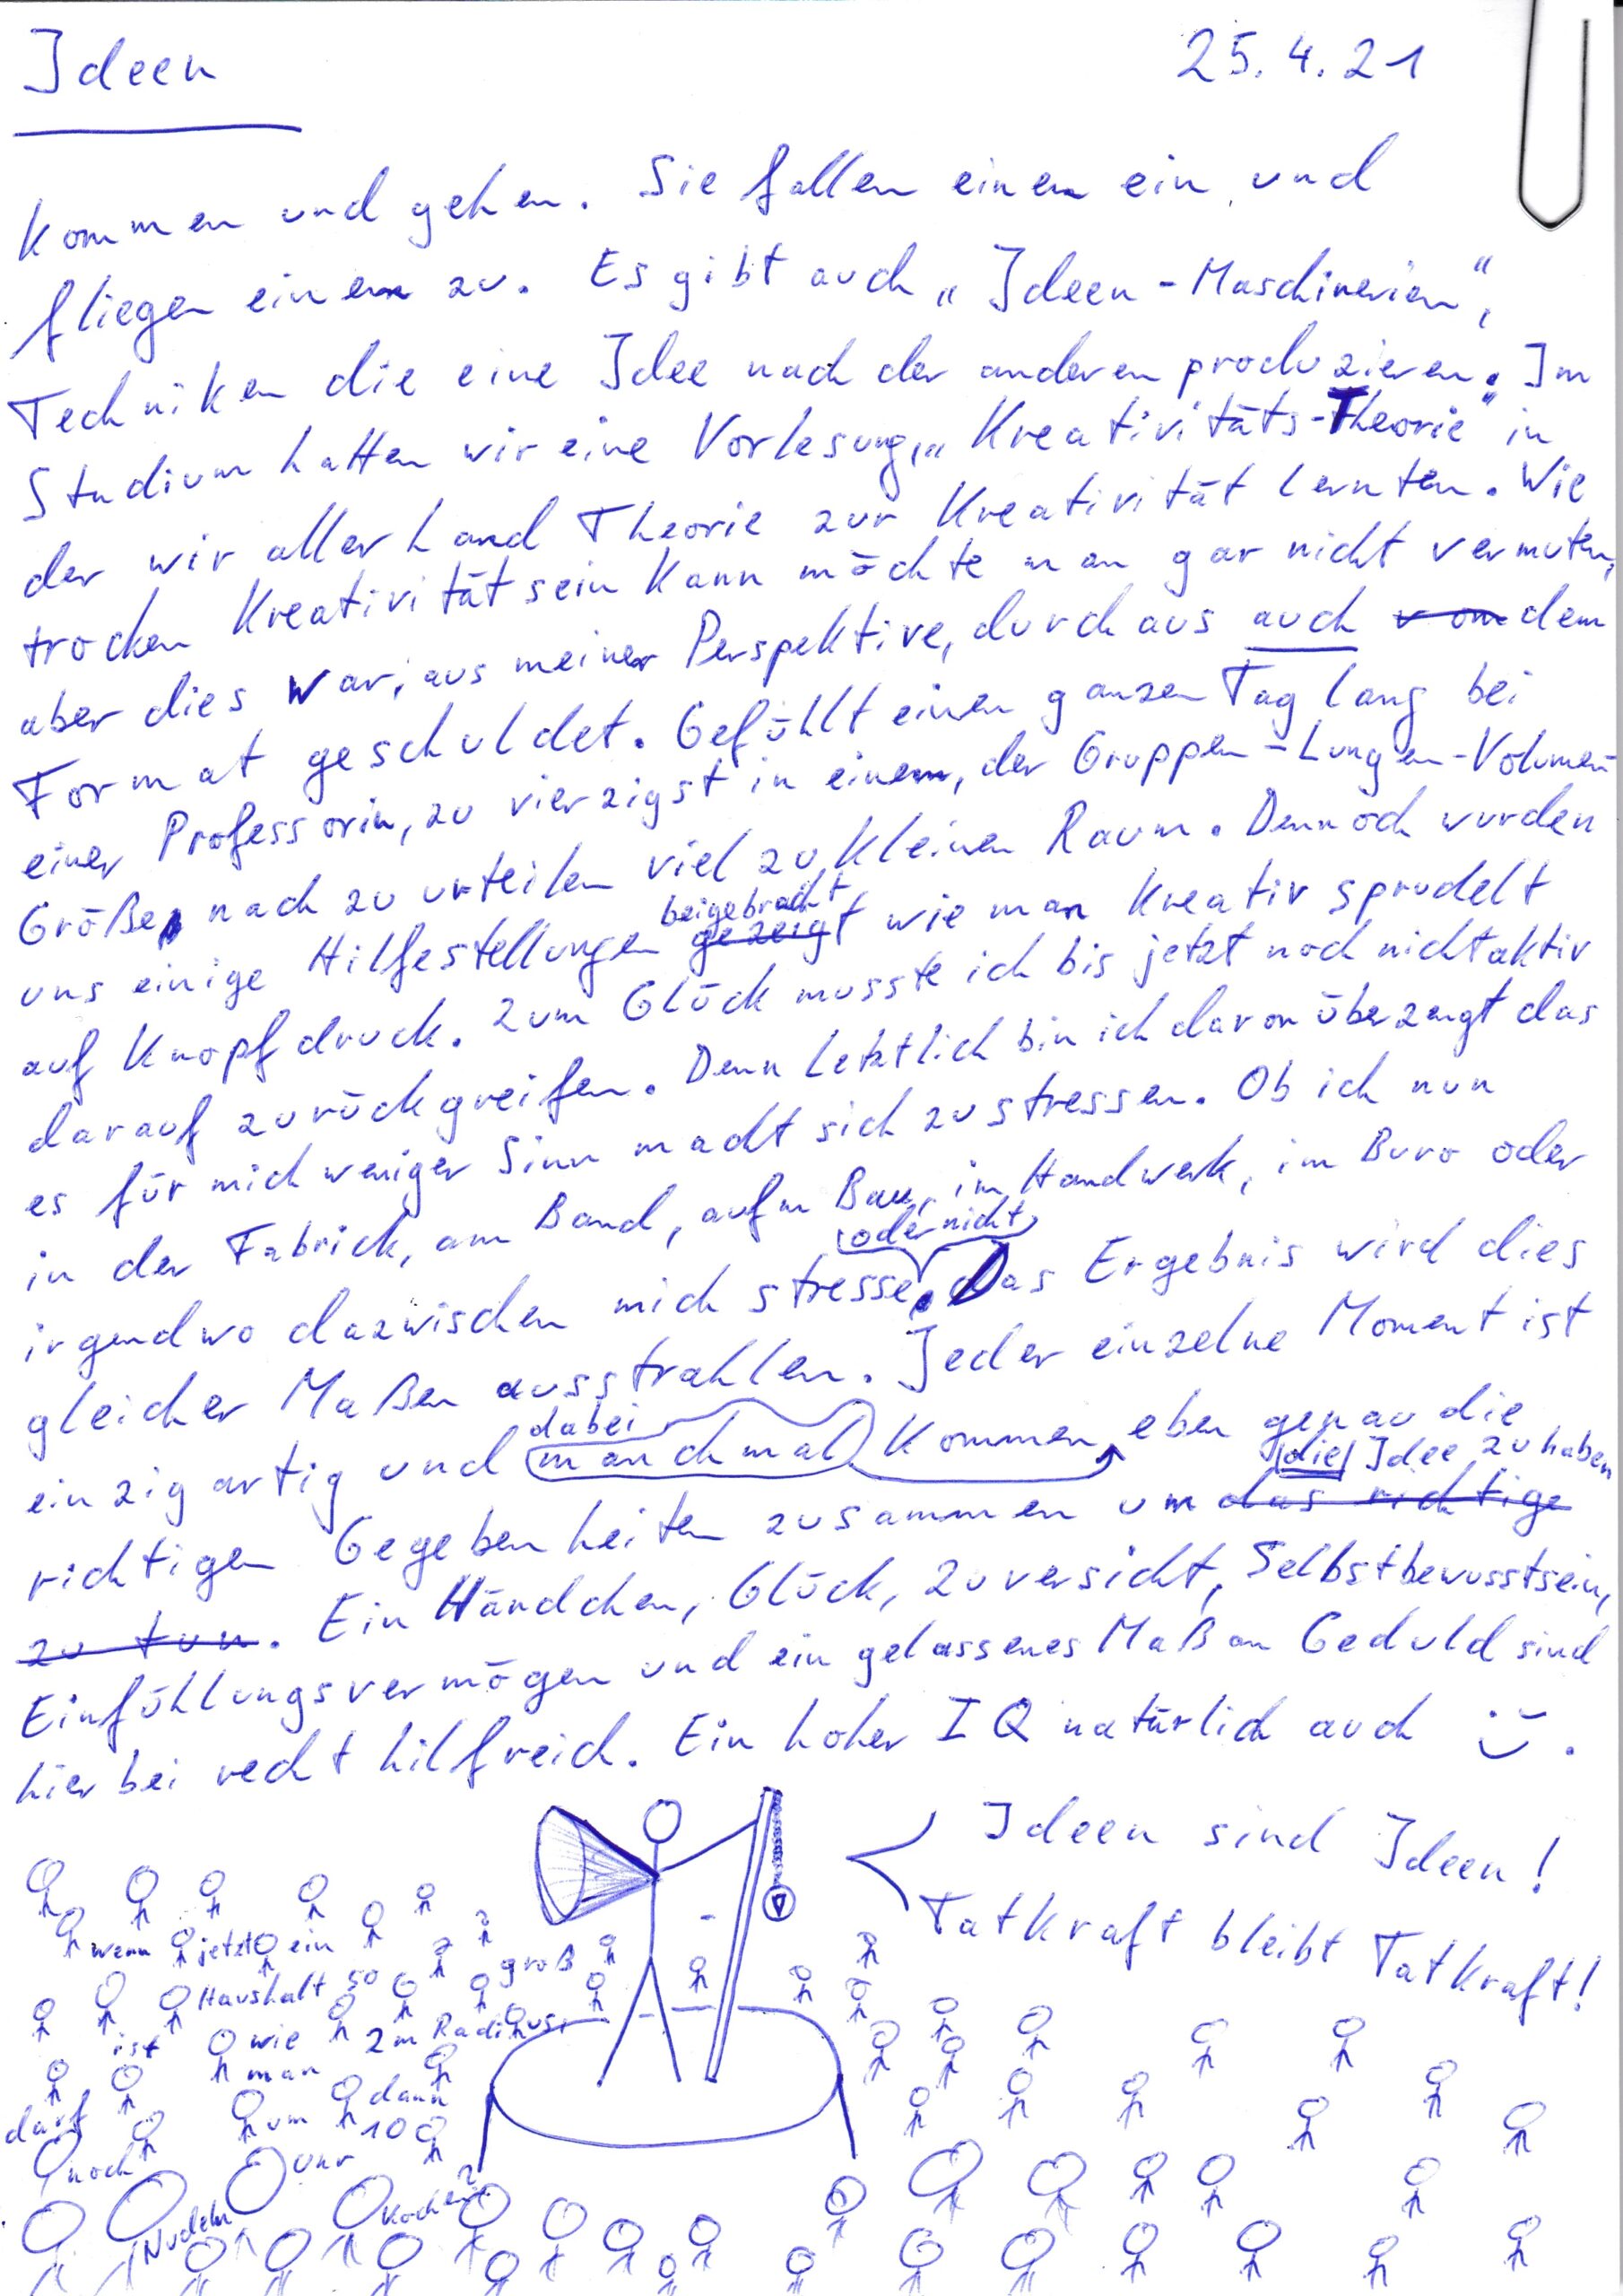 Ideen 25.4.21
kommen und gehen. Sie fallen einem ein und
fliegen einem zu. Es gibt auch „Ideen-Maschinerien",
Techniken die eine Idee nach der anderen produzieren. Im
Studium hatten wir eine Vorlesung, „Kreativitäts-Theorie" in
der wir allerhand Theorie zur Kreativität lernten. Wie
trocken Kreativität sein kann möchte man gar nicht vermuten,
aber dies war, aus meiner Perspektive, durchaus auch von dem
Format geschuldet. Gefühlt einen ganzen Tag lang bei
einer Professorin, zu vierzigst in einem, der Gruppen-Lungen-Volumen-
Größe nach zu urteilen viel zu kleinen Raum. Dennoch wurden
beigebracht
uns einige Hilfestellungen gezeigt wie man kreativ sprudelt
auf Knopfdruck. Zum Glück musste ich bis jetzt noch nicht aktiv
darauf zurückgreifen. Denn letztlich bin ich davon überzeugt das
es für mich weniger Sinn macht sich zu stressen. Ob ich nun
in der Fabrick, am Band, aufm Bau, im Handwerk, im Büro oder
(oder nicht)
irgendwo dazwischen mich stresse. Das Ergebnis wird dies
gleicher Maßen ausstrahlen. Jeder einzelne Moment ist
dabei
einzigartig und manchmal kommen eben genau die
die Idee zu haben
richtigen Gegebenheiten zusammen um das richtige
zu tun. Ein Händchen, Glück, Zuversicht, Selbstbewusstsein,
Einfühlungsvermögen und ein gelassenes Maß an Geduld sind
hierbei recht hilfreich. Ein hoher IQ natürlich auch .
Ideen sind Ideen!
Tatkraft bleibt Tatkraft!
wenn jetzt ein
Haushalt so groß
ist wie 2m Radius,
man dann
darf um 10
noch Uhr
Nudeln kochen?